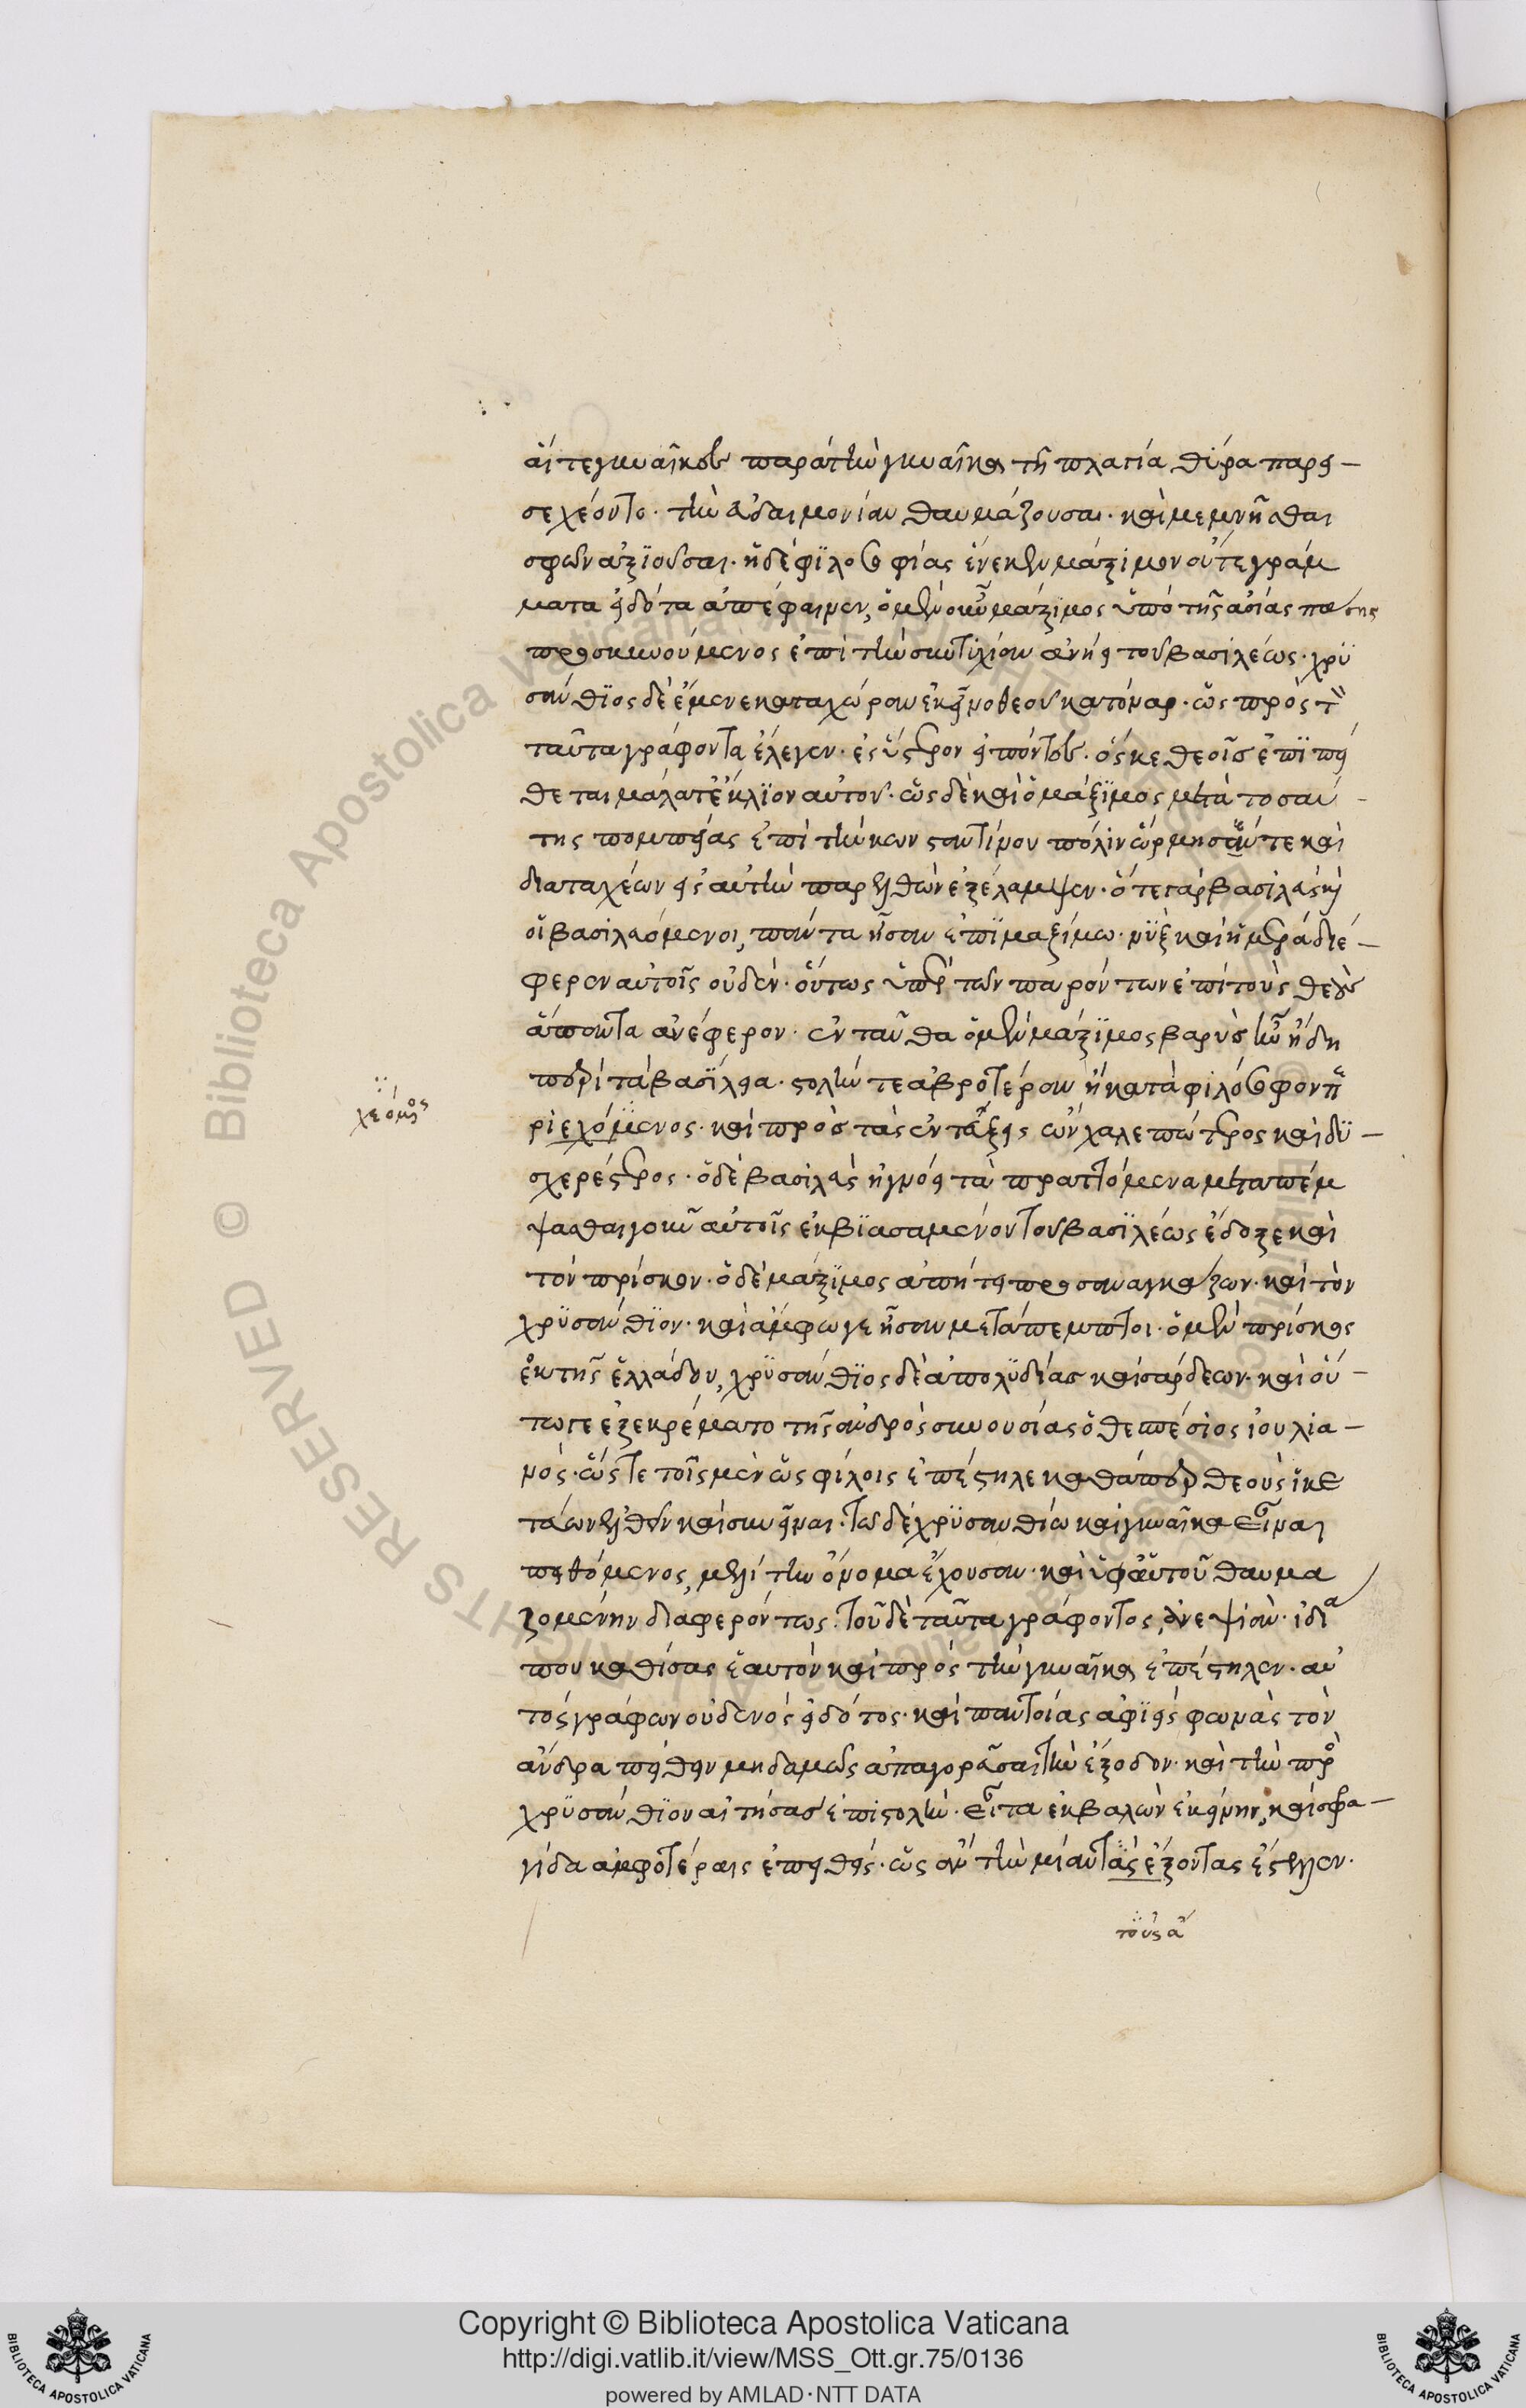 αἵ τε γυναῖκες παρὰ τὴν γυναῖκα τῇ πλαγία θύρα παρει–
σεχέοντο· τὴν εὐδαιμονίαν θαυμάζουσαι· καὶ μεμνῆσθαι
σφῶν ἀξϊοῦσαι· ἡ δὲ φϊλοσοφίας ἕνεκεν μάξιμον οὔτε γράμ
ματα εἰδότα ἀπέφαινεν, ὁ μὲν οὖν μάξιμος ὑπὸ τῆς ἀσίας πάσης
προσκυνούμενος ἐπὶ τὴν συντϋχίαν ἀνήει τοῦ βασιλέως· χρϋ
σάνθϊος δὲ ἔμενε κατα χώραν ἐκεῖνο θεοῦ κατ' ὄναρ· ὡς πρὸς τὸν
ταῦτα γράφοντα ἔλεγεν· ἐς ὕστερον εἰπόντος· ὅς κε θεοῖς ἐπϊπεί
θεται μάλα τ' ἔκλϋον αὐτοῦ· ὡς δὲ καὶ ὁ μάξϊμος μετὰ τοσαύ–
της πομπείας ἐπὶ τὴν κωνσταντίνου πόλιν ὥρμησάν τε καὶ
διαταχέων εἰς αὐτὴν παρελθὼν ἐξέλαμψεν· ὅ τε γὰρ βασιλεὺς καὶ
οἱ βασιλευόμενοι, πάντα ἦσαν ἐπϊ μαξίμω· νὺξ καὶ ἡμέρα διέ–
φερεν αὐτοῖς οὐδέν· οὕτως ὑπὲρ τῶν παρόντων ἐπὶ τοὺς θεοὺς
ἅπαντα ἀνέφερον· ἐνταῦθα ὁ μὲν μάξϊμος βαρὺς ἦν ἤδη
περὶ τὰ βασϊλεια· στολήν τε ἁβροτέραν ἢ κατὰ φιλόσοφον πε
ριεχόμενος· καὶ πρὸς τὰς ἐντεύξεις ὢν χαλεπώτερος καὶ δυ–
σχερέστερος· ὁ δὲ βασιλεὺς ἠγνόει τὰ πραττόμενα μεταπέμ
ψασθαι γοῦν αὐτοῖς ἐκβϊασαμένου τοῦ βασϊλέως ἔδοξε καὶ
τὸν πρίσκον· ὁ δὲ μάξϊμος ἀπήτει προσαναγκάζων· καὶ τὸν
χρϋσάνθϊον· καὶ ἄμφω γε ἦσαν μετάπεμπτοι· ὁ μὲν πρίσκος
ἐκ τῆς ἑλλάδος, χρϋσάνθϊος δὲ ἀπολϋδίας καὶ σάρδεων· καὶ οὕ–
τω γε ἐξεκρέματο τῆς ἀνδρὸς συνουσίας ὁ θεσπέσϊος ἰουλια–
νός· ὥστε τοῖς μὲν ὡς φίλοις ἐπέστηλε καθάπερ θεοὺς ἱκε
τεύων ἐλθεῖν καὶ συνεῖναι· τῶ δὲ χρϋσανθίω καὶ γυναῖκα εἶναι
πειθόμενος, μελίτην ὄνομα ἔχουσαν· καὶ ὑφ' αὑτοῦ θαυμα
ζομένην διαφερόντως· τοῦ δὲ ταῦτα γράφοντος, ἀνεψιάν· ἰδία
που καθίσας ἑαυτὸν καὶ πρὸς τὴν γυναῖκα ἐπέστηλεν· αὐ
τὸς γράφων οὐδενὸς εἰδότος· καὶ παντοίας ἀφϊεὶς φωνὰς τὸν
ἄνδρα πείθειν μηδαμῶς ἀπαγορεῦσαι τὴν ἔξοδον· καὶ τὴν πρὸς
χρϋσάνθϊον αἰτήσας ἐπιστολήν· εἶτα ἐκβαλὼν ἐκείνην, καὶ σφρα–
γίδα ἀμφοτέραις ἐπιθείς· ὡς ἂν τὴν μίαν τὰς ἕξοντας ἔστελλεν·
χεόμενος
τοὺς ἄ
Copyright © Biblioteca Apostolica Vaticana
http://digi.vatlib.it/view/MSS_Ott.gr.75/0136
powered by AMLAD·NTT DATA